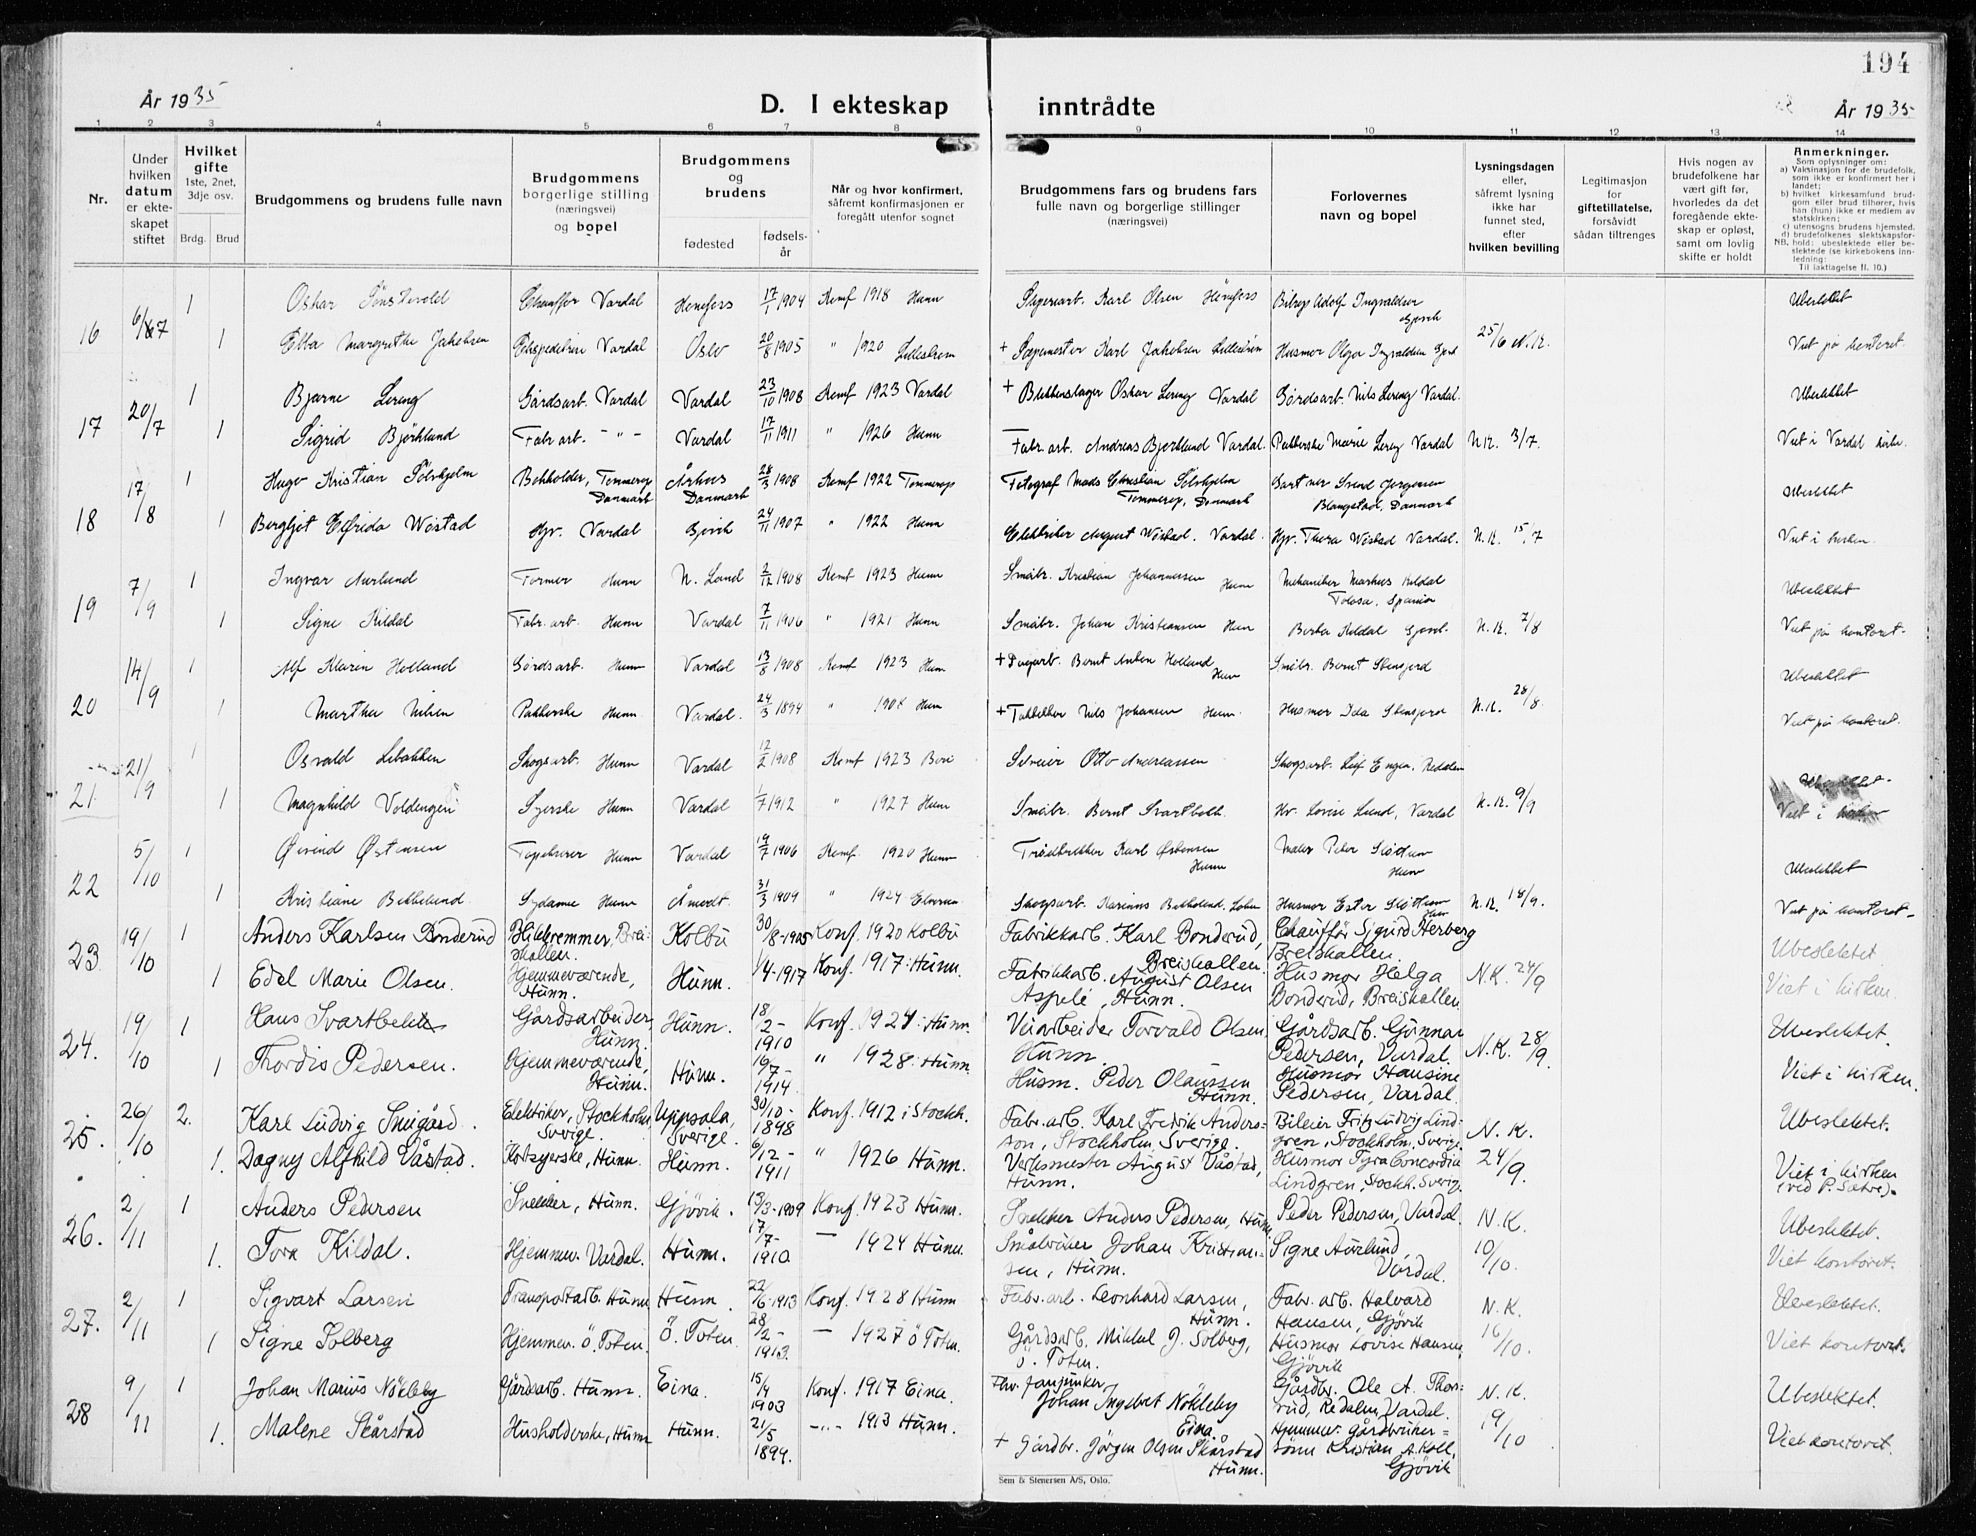 194
År 1935
D. I ekteskap inntrådte
År 1935
1 2 3 4 5 6 7 8 9 10 11 12 13 14
Nr.
Under hvilken datum er ekteskapet stiftet
Hvilket gifte
1ste, 2net, 3dje osv.
Brdg. Brud
Brudgommens og brudens fulle navn
Brudgommens borgerlige stilling (næringsvei) og bopel
Brudgommens og brudens
fødested
fødselsår
Når og hvor konfirmert, såfremt konfirmasjonen er foregått utenfor sognet
Brudgommens fars og brudens fars fulle navn og borgerlige stillinger (næringsvei)
Forlovernes navn og bopel
Lysningsdagen eller, såfremt lysning ikke har funnet sted, efter hvilken bevilling
Legitimasjon for giftetillatelse, forsåvidt sådan tiltrenges
Hvis nogen av brudefolkene har vært gift før, hvorledes da det foregående ekteskap er opløst, samt om lovlig skifte er holdt
Anmerkninger.
Som oplysninger om:
a) Vaksinasjon for de brudefolk, som ikke er konfirmert her i landet;
b) hvilket kirkesamfund brudgom eller brud tilhører, hvis han (hun) ikke er medlem av statskirken;
c) utensogns brudens hjemsted.
d) brudefolkenes slektskapsforhold: ubeslektede eller beslektede (se kirkebokens innledning:
NB.
Til iakttagelse fl. 10.)
16 1 Oskar Chauffør Vardal Hønefoss 17/1 1904 Konf 1918 Hunn Karl Olsen Hønefoss Adolf Ingvaldsen Gjøvik Ubeslektet
1 Ebba Margrethe Jakobsen Vardal Oslo 20/8 1905 " 1920 Lillestrøm + Karl Jakobsen Lillestrøm Husmor Olga Ingvaldsen 25/6 N.K. Viet på kontoret.
17 20/7 1 Bjarne Lereng Gårdsarb. Vardal Vardal 23/10 1908 Konf 1923 Vardal + Blikkenslager Oskar Lereng Vardal Gårdsarb. Nils Lereng Vardal. Ubeslektet
1 Sigrid Björklund Fabr. arb. - " - Vardal 17/11 1911 " 1926 Hunn Fabr. arb. Andreas Bjørklund Vardal. Pakkerske Marie Lereng Vardal N.K. 3/7. Viet i Vardal kirke.
18 17/8 1 Hugo Kristian Sölvhjelm Bokholder, Tommerup Danmark Århus Danmark 28/3 1908 Konf 1922 Tommerup Fotograf Mads Christian Sölvhjelm Tommerup, Danmark Gartner Svend Jørgensen Blangstad, Danmark Ubeslektet
1 Bergljot Elfrida Wåstad Hjv. Vardal Gjøvik 24/11 1907 " 1922 Hunn Elektriker August Wåstad. Vardal. Hjv. Thora Wåstad Vardal. N.K. 15/7 Viet i kirken.
19 7/9 1 Ingvar Aurlund Former Hunn N. Land 2/12 1908 Konf 1923 Hunn Småbr. Kristian Johannessen Hunn Mekaniker Markus Kildal Tolosa, Spania Ubeslektet
1 Signe Kildal Fabr. arb. Hunn Vardal 7/11 1906 " 1921 Hunn Småbr. Johan Kristiansen Hunn Berta Kildal Gjøvik. N.K. 7/8 Viet på kontoret.
20 14/9 1 Alf Klarin Holland Gårdsarb. Hunn Vardal 13/8 1908 Konf 1923 Hunn + Bernt Anton Holland Hunn Småbr. Bernt Stensjord Ubeslektet
1 Martha Nilsen Pakkerske Hunn Vardal. 24/3 1894 " Hunn + Nils Johansen Hunn. Husmor Ida Stensjord N.K. 28/8. Viet på kontoret.
21 21/9 1 Osvald Libakken Skogsarb. Hunn Vardal 12/2 1908 Konf 1923 Otto Andreassen Skogsarb. Leif Enger. Redalen Ubeslektet.
1 Magnhild Voldengen Syerske Hunn Vardal 1/7 1912 " 1927 Hunn Småbr. Bernt Svartbekk. Hv. Lovise Lund, Vardal N.K. 9/9 Viet i kirken
22 5/10 1 Øivind Østensen Hunn Vardal 19/7 1906 Konf. 1920 Hunn Trådtrekker Karl Østensen Hunn Maler Peter Sløttum Hunn Ubeslektet
1 Kristiane Bekkelund Sydame Hunn Åmodt. 31/3 1909 " 1924 Elverum Skogsarb. Husmor Ester Sløttum Hunn N.K. 18/9. Viet på kontoret.
23 19/10 1 Anders Karlsen Bonderud Breiskallen. Kolbu 30/8-1905 Konf. 1920 Kolbu Fabrikkarb. Karl Bonderud, Breiskallen. Chauffør Sigurd Herberg Breiskallen. Ubeslektet.
1 Edel Marie Olsen. Hjemmeværende, Hunn. Hunn. 1/4-1917 Konf. 1917: Hunn. Fabrikkarb. August Olsen Aspelé, Hunn. Husmor Helga Bonderud, Breiskallen N.K. 24/9 Viet i kirken.
24. 19/10 1 Hans Svartbekk Gårdsarbeider, Hunn. Hunn. 18/2- 1910 Konf. 1924: Hunn. Veiarbeider Torvald Olsen, Hunn. Gårdsarb. Gunnar Pedersen, Vardal. N.K. 28/9. Ubeslektet.
1 Thordis Pedersen. Hjemmeværende, Hunn. Hunn. 19/7- 1914. " 1928: Hunn. Husm. Peder Olaussen Hunn. Husmor Hansine Pedersen, Vardal. Viet i kirken.
25. 26/10 2. Karl Ludvig Snigård. Elektriker, Stockholm, Sverige. Uppsala, Sverige. 30/10- 1898 Konf. 1912 i Stockh. Fabr. arb. Karl Fredrik Andersson, Stockholm, Sverige. Bileier Fritz Ludvig Lindgren, Stockholm, Sverige N.K. Ubeslektet.
1. Dagny Alfhild Våstad. Kortsyerske, Hunn. Hunn. 6/12- 1911 " 1926 Hunn. Verksmester August Våstad, Hunn. Husmor Tyra Concordia Lindgren, Stockh. Sverig. 24/9. Viet i kirken (ved P. Sætre).
26. 2/11 1 Anders Pedersen Snekker, Hunn. Gjøvik. 13/3-1909 Konf. 1923 Hunn. Snekker Anders Pedersen, Hunn. Peder Pedersen, Vardal. N.K. Ubeslektet.
1. Tora Kildal. Hjemmev. Vardal. Hunn. 17/7- 1910. — 1924 Hunn. Småbruker Johan Kristiansen, Hunn. Signe Aurlund, Vardal. 10/10. Viet kontoret.
27. 2/11 1 Sigvart Larsen Transportarb. Hunn Hunn. 22/6-1913 Konf. 1928 Hunn Fabr. arb. Leonhard Larsen, Hunn. Fabr. arb. Halvard Hansen, Gjøvik N.K. Ubeslektet.
1 Signe Solberg Hjemmev. Ö. Toten. Ö. Toten. 28/2- 1913. — 1927 Ö Toten. Gårdsarb. Mikkel J. Solberg, Ö. Toten. Husmor Lovise Hansen, Gjøvik 16/10. Viet kontoret.
28 9/11 1 Johan Marius Nökleby Gårdsarb. Hunn. Eina. 15/4 1903 Konf. 1917 Eina. Fhv. fanjunker Johan Ingebret Nökleby Eina. Gårdbr. Ole A. Thorsrud, Redalen, Vardal. N.K. Ubeslektet.
1. Malene Skårstad Husholderske, Hunn Hunn. 21/5 1894. -"- 1913 Hunn. + Gårdbr. Jörgen Olsen Skårstad Hunn. Hjemmev. Gårdbruker= sönn Kristian A. Koll, Gjøvik 19/10 Viet kontoret.
Sem & Stenersen A/S, Oslo.